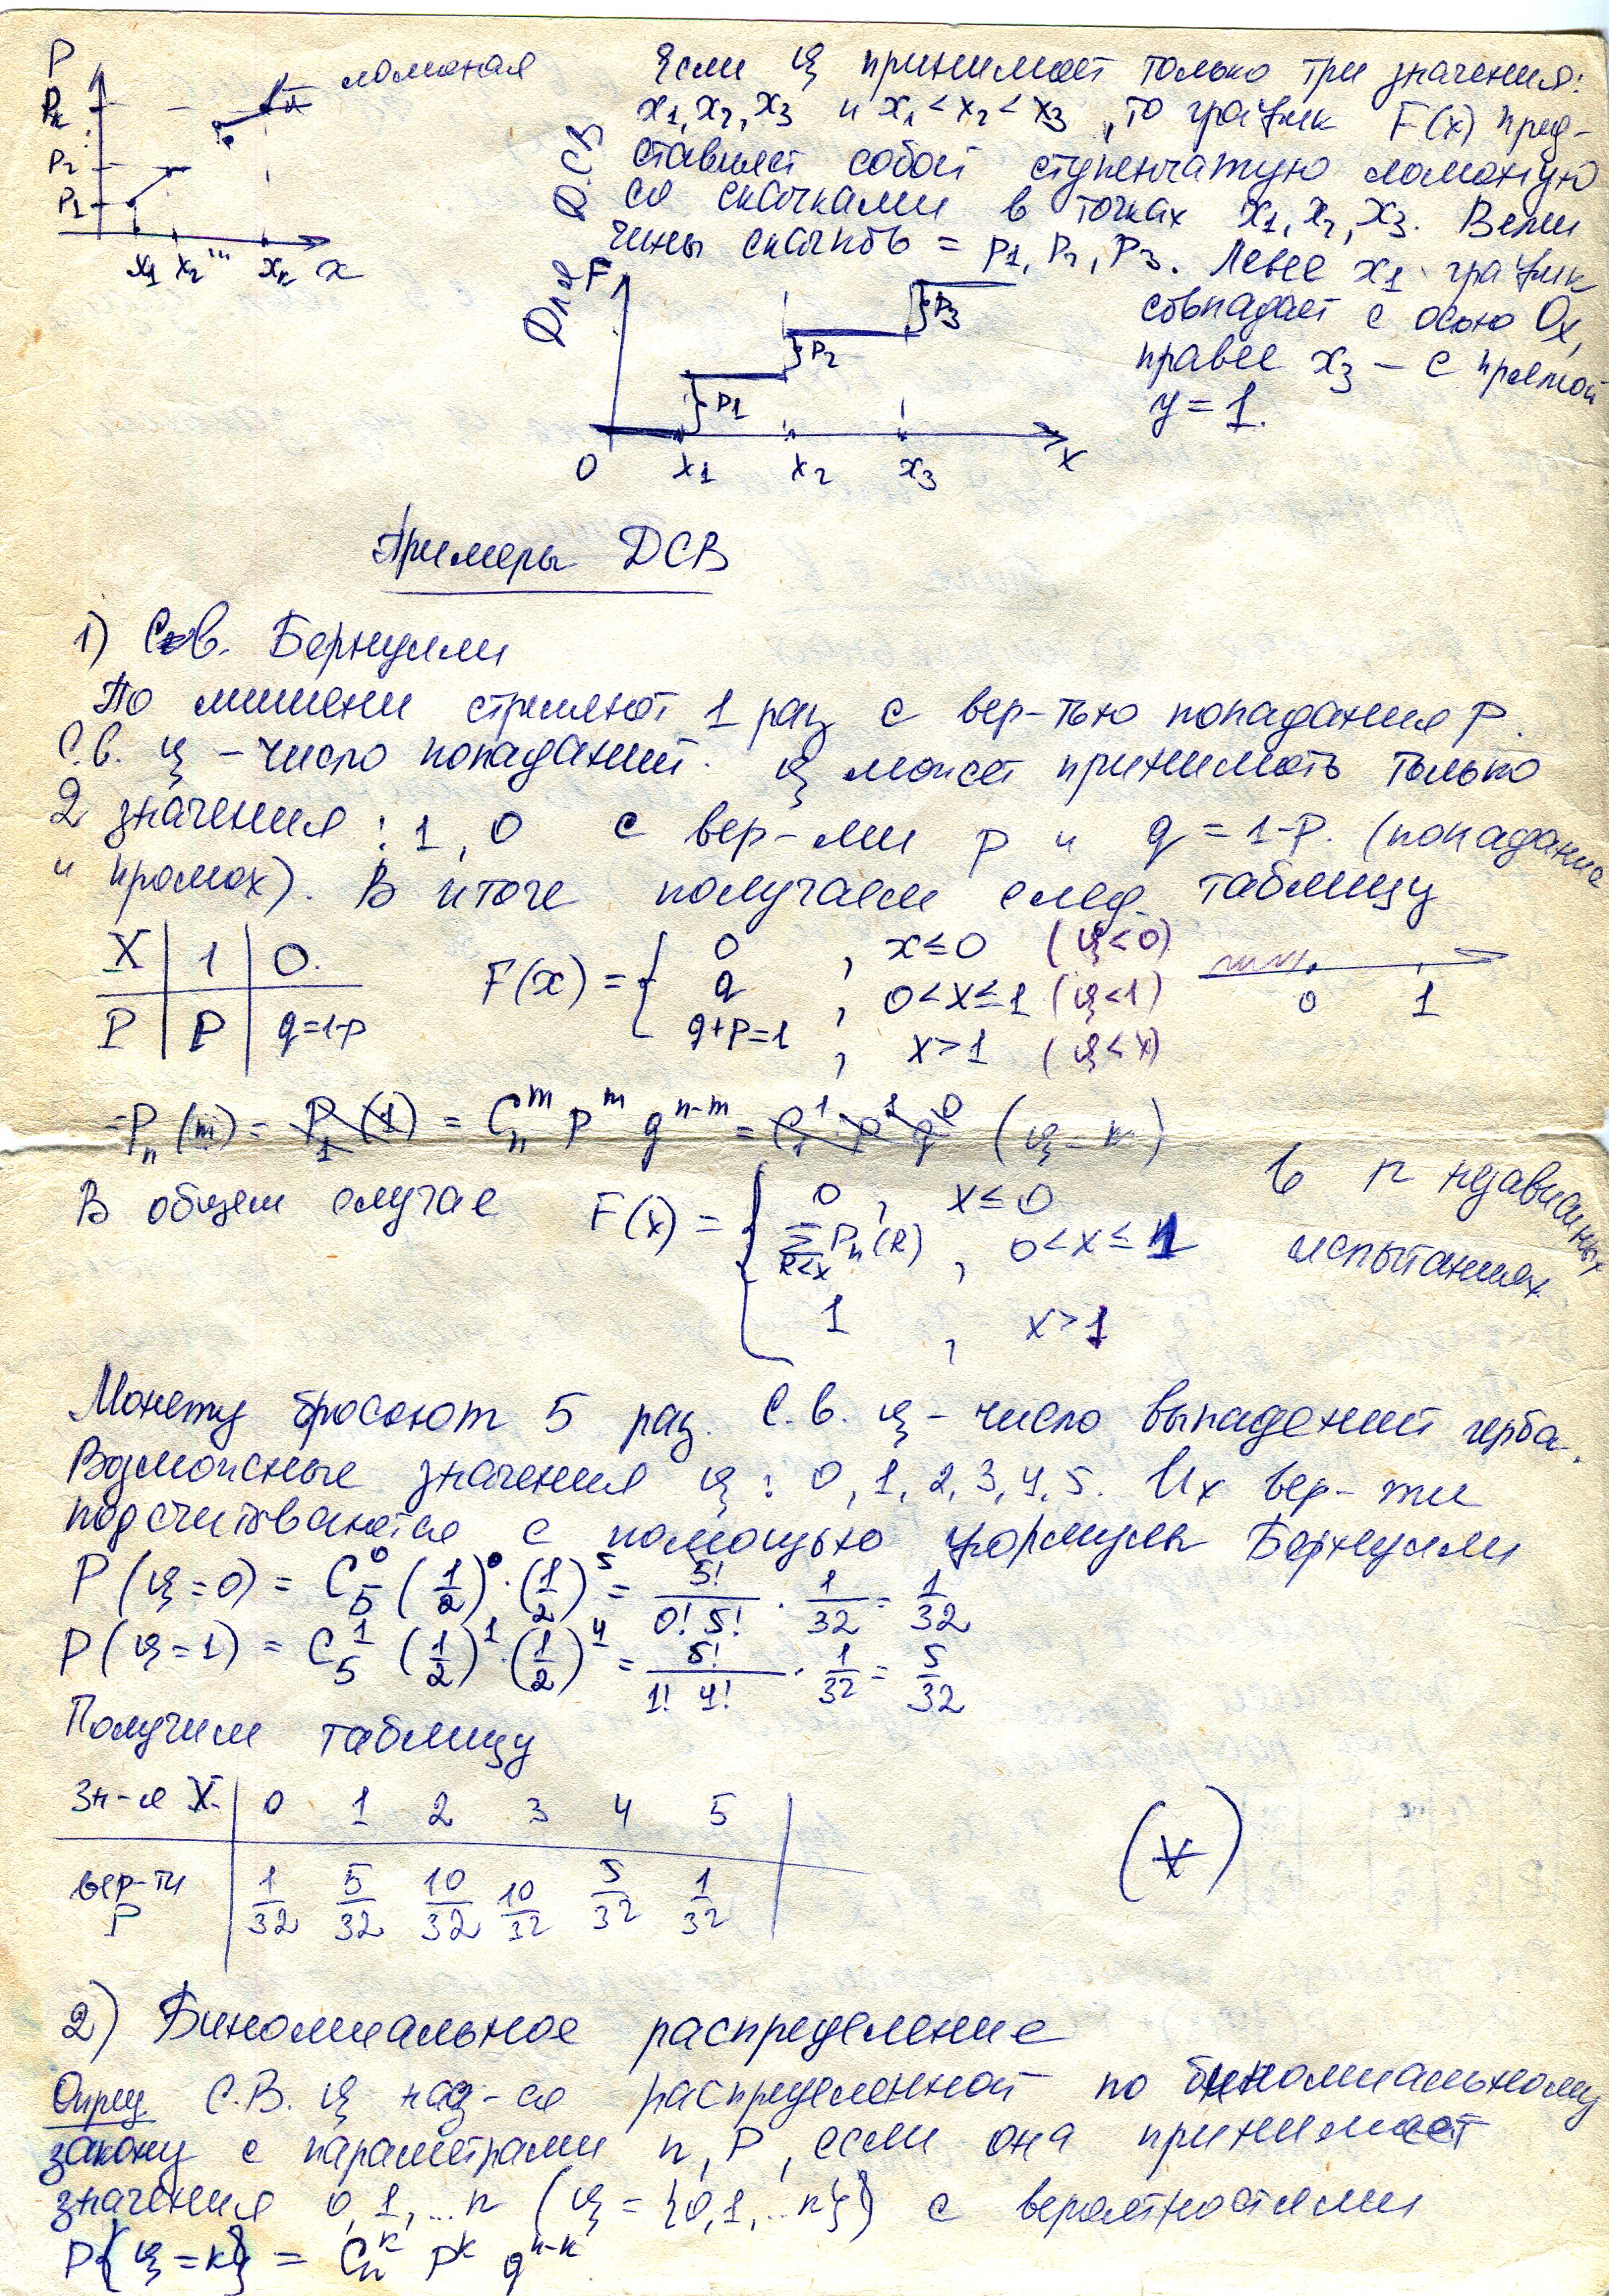 P
Pк
P2
P1
x1 x2 ... xк x
ломаная
Если ξ принимает только три значения:
x1, x2, x3 и x1 < x2 < x3, то график F(x) пред-
ставляет собой ступенчатую ломаную
со скачками в точках x1, x2, x3. Вели
чины скачков = P1, P2, P3. Левее x1 график
совпадает с осью Ox,
правее x3 – с прямой
y = 1.
Для Д.С.В
F
P1
P2
P3
0 x1 x2 x3 x
Примеры ДСВ
1) С.в. Бернулли
По мишени стреляют 1 раз с вер-тью попадания P.
С.в. ξ – число попаданий. ξ может принимать только
2 значения: 1, 0 с вер-ми p и q = 1-P. (попадание
и промах). В итоге получаем след. таблицу
X | 1 | 0.
P | P | q=1-p
F(x) = { 0 , x≤0 (ξ<0)
q , 0<x≤1 (ξ<1)
q+p=1 , x>1 (ξ<x)
0 1
=Pn(m) = P1(1) = Cn^m P^m q^n-m = C1^1 P^1 q^0 (ξ = к)
В общем случае F(x) = { 0, x≤0
∑k<x Pn(k), 0<x≤1
1 , x>1
в n независимых
испытаниях
Монету бросают 5 раз. С.в. ξ – число выпадений герба.
Возможные значения ξ: 0, 1, 2, 3, 4, 5. Их вер-ти
подсчитываются с помощью формулы Бернулли
P(ξ=0) = C5^0 (1/2)^0 · (1/2)^5 = 5!/0! 5! · 1/32 = 1/32
P(ξ=1) = C5^1 (1/2)^1 · (1/2)^4 = 5!/1! 4! · 1/32 = 5/32
Получим таблицу
Зн-я X | 0 1 2 3 4 5
вер-ти P | 1/32 5/32 10/32 10/32 5/32 1/32
(*)
2) Биномиальное распределение
Опред. С.В. ξ наз-ся распределенной по биномиальному
закону с параметрами n, P, если она принимает
значения 0, 1, ... n (ξ = {0, 1, ... n}) с вероятностями
P{ξ=к} = Cn^к P^к q^n-к